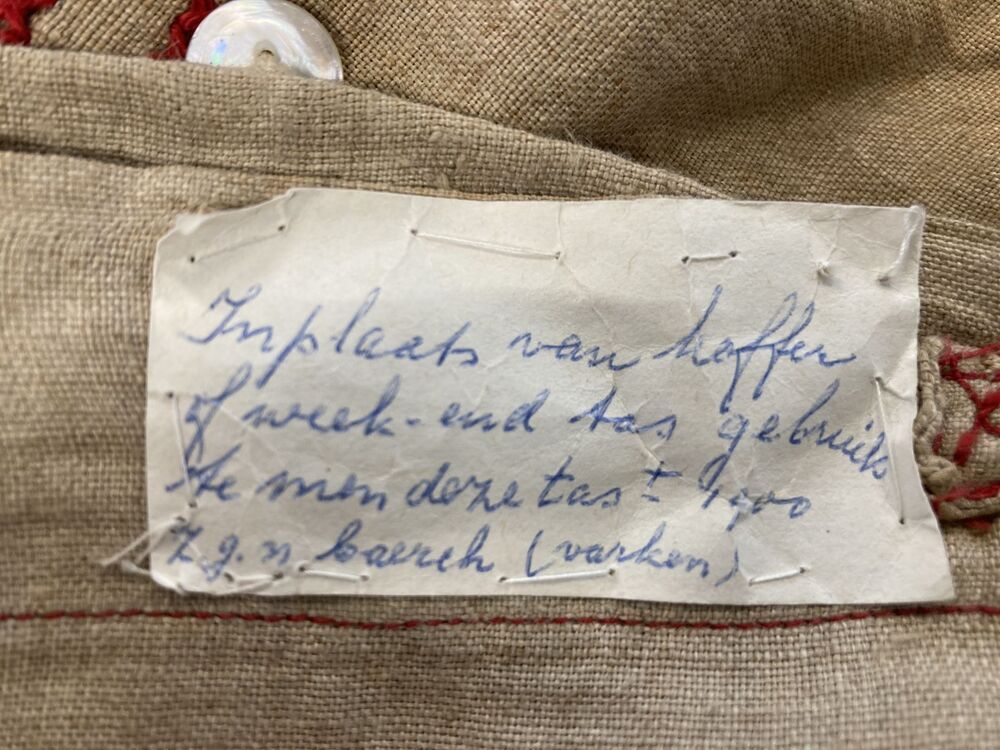 Inplaats van koffer
of week-end tas gebruik
te men deze tas ± 1900
Z.g.n. baerch (varken)